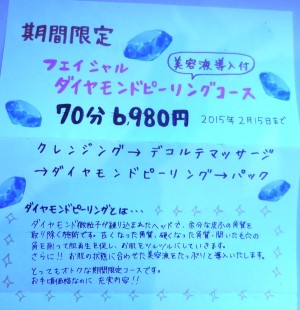 期間限定
美容液導入付
フェイシャル
ダイヤモンドピーリングコース
70分 6,980円 2015年2月15日まで
クレンジング→デコルテマッサージ
→ダイヤモンドピーリング→パック
ダイヤモンドピーリングとは・・・
ダイヤモンド微粒子が練り込まれたヘッドで、余分な皮ふの角質を
取り除く施術です。古くなった角質、硬くなった角質・開いた毛穴の
角を削って肌再生を促し、お肌をツルツルにしていきます。
さらに!! お肌の状態に合わせた美容液をたっぷりと導入いたします。
とってもオトクな期間限定コースです。
お手頃価格なのに充実内容!!